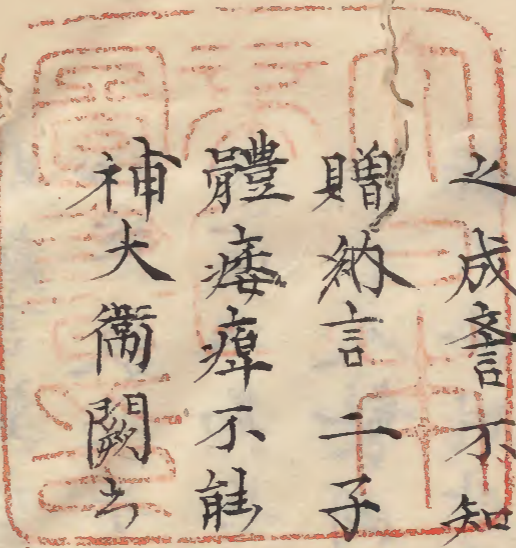 之成不知
贈納言二子
體痿痺不能
補大衞闕